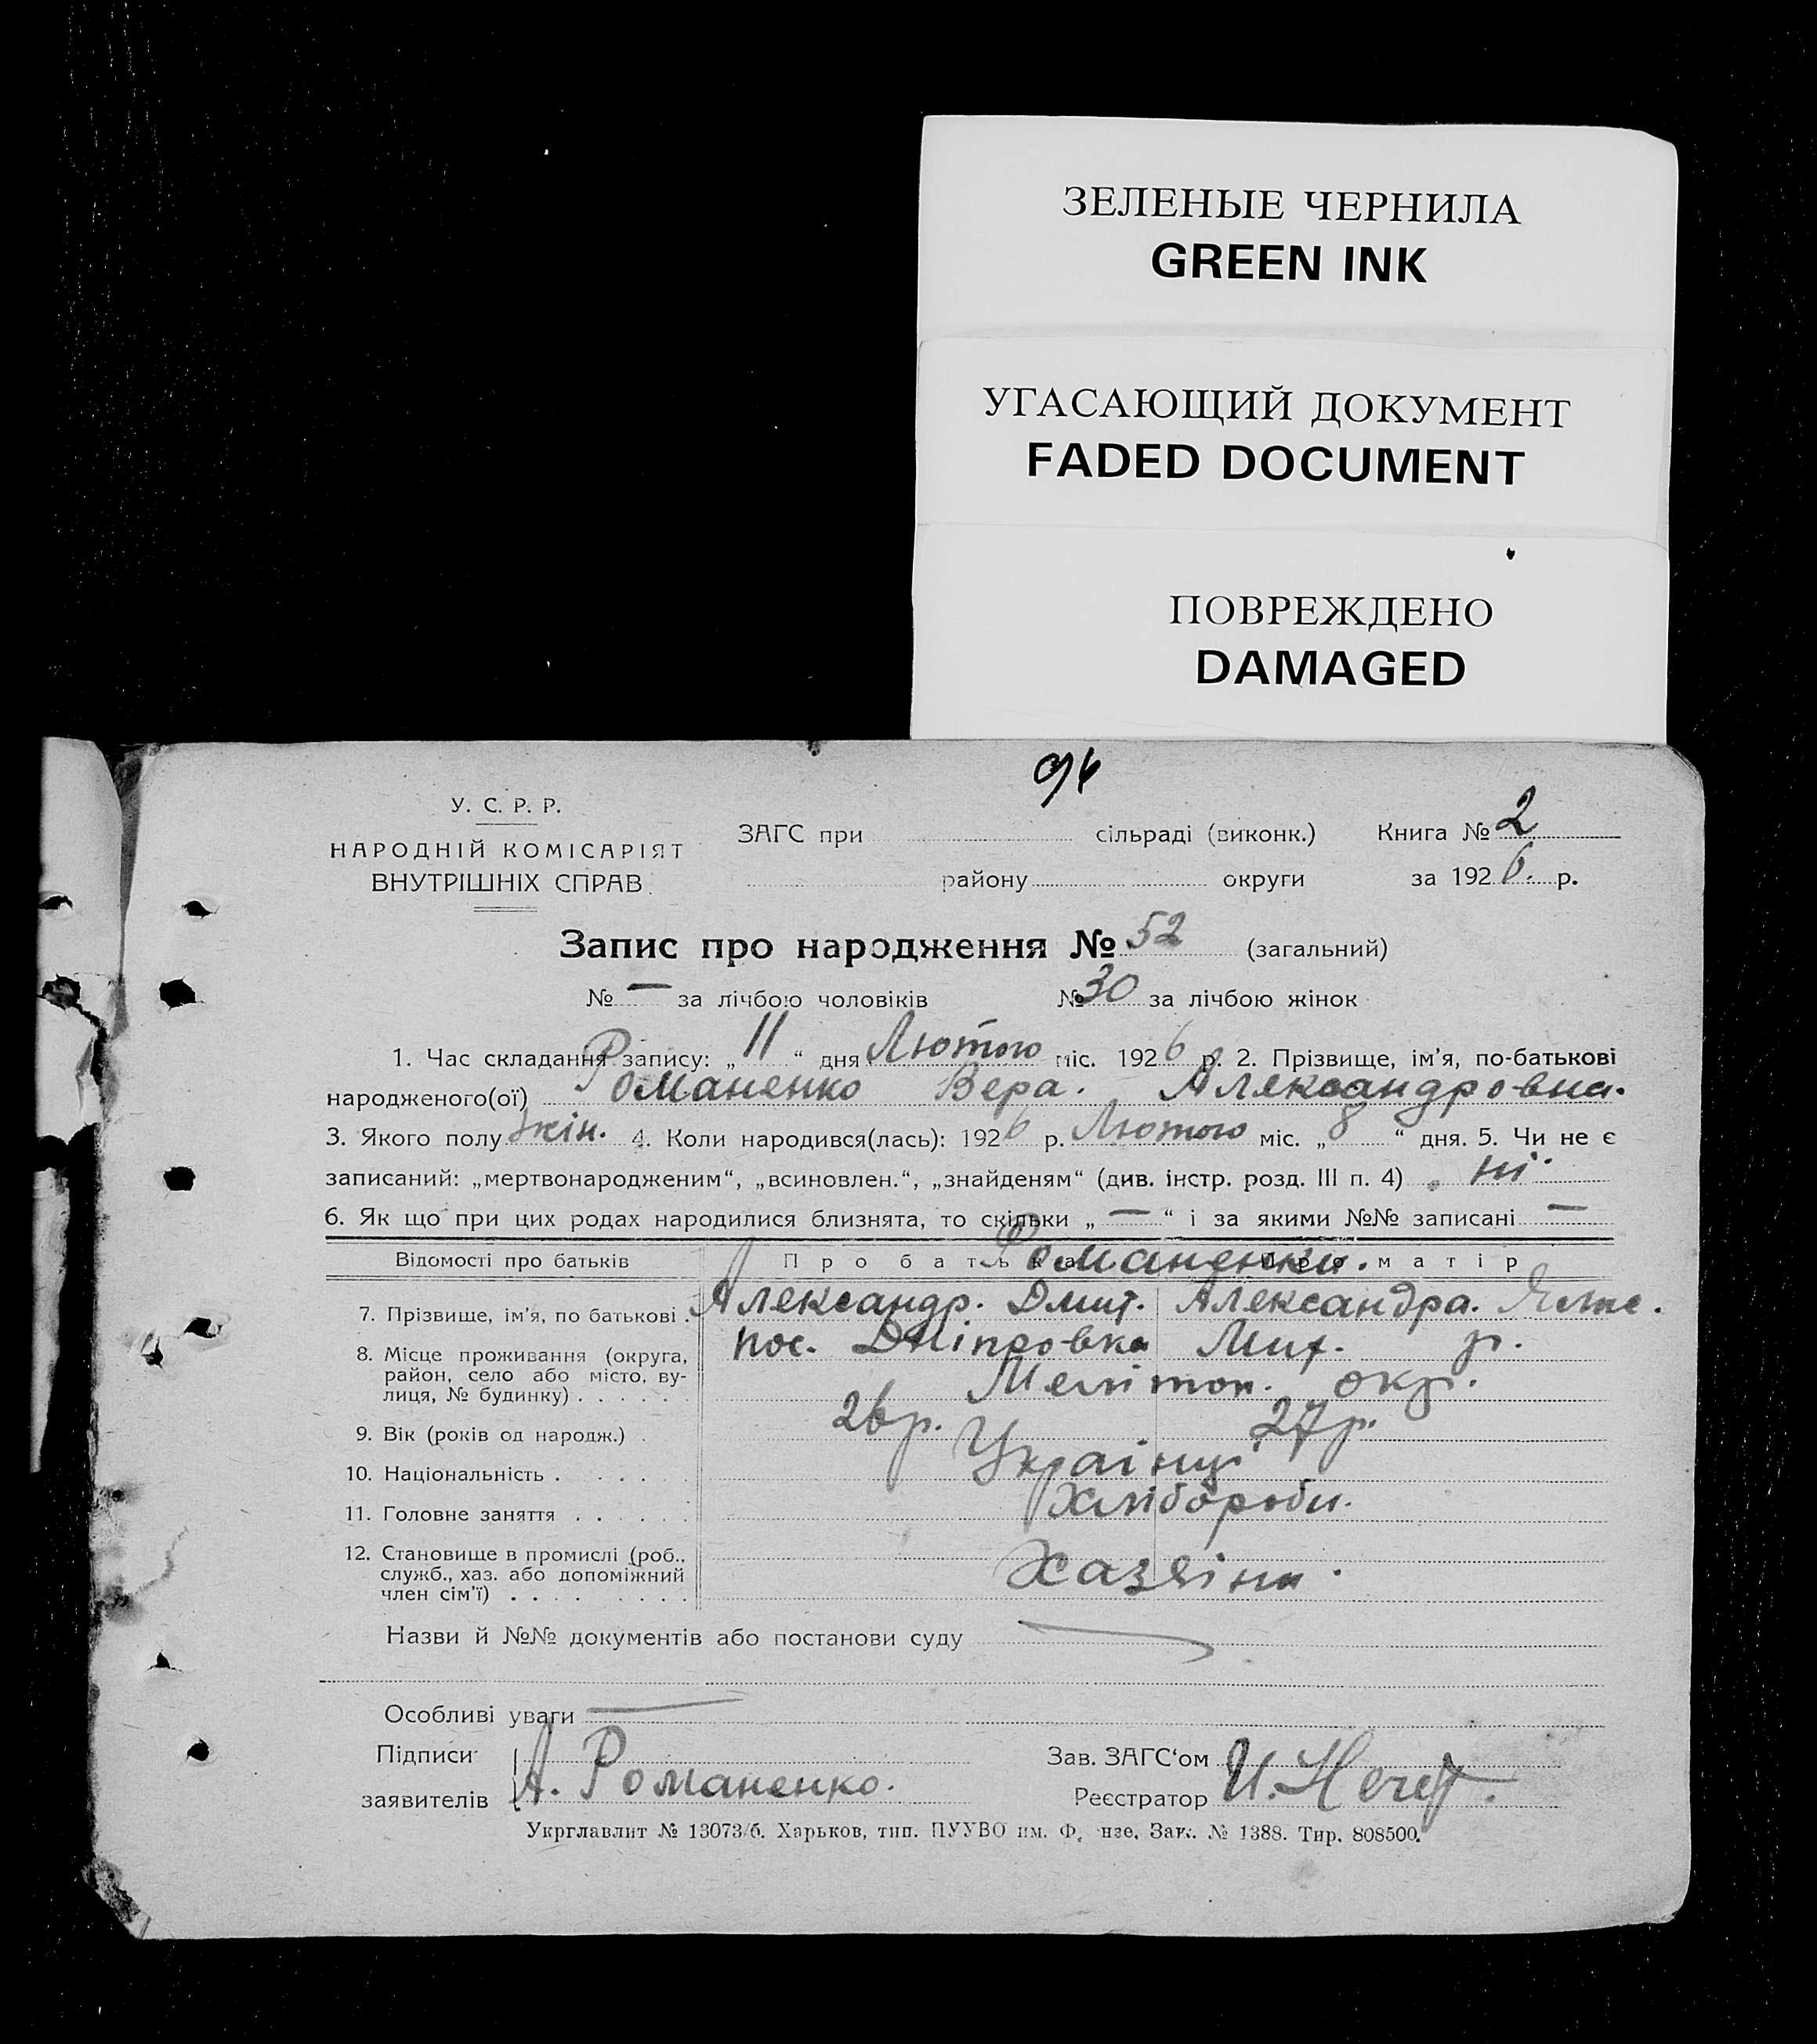 ЗЕЛЕНЫЕ ЧЕРНИЛА
GREEN INK
УГАСАЮЩИЙ ДОКУМЕНТ
FADED DOCUMENT
ПОВРЕЖДЕНО
DAMAGED
У. С. Р. Р.
НАРОДНІЙ КОМІСАРІЯТ
ВНУТРІШНІХ СПРАВ
ЗАГС при сільраді (виконк.) Книга № 2
району округи за 1926. р.
Запис про народження № 52 (загальний)
№ — за лічбою чоловіків № 30 за лічбою жінок
1. Час складання запису: „11“ дня Лютого міс. 1926 р. 2. Прізвище, ім'я, по-батькові
народженого(ої) Романенко Вера. Александровна.
3. Якого полу жін. 4. Коли народився(лась): 1926 р. Лютого міс. „8“ дня. 5. Чи не є
записаний: „мертвонародженим“, „всиновлен.“, „знайденям“ (див. інстр. розд. III п. 4) ні
6. Як що при цих родах народилися близнята, то скільки „—“ і за якими №№ записані —
Відомості про батьків Про батька Про матір
Романенки.
7. Прізвище, ім'я, по батькові . Александр. Дмит. Александра.
8. Місце проживання (округа, район, село або місто, вулиця, № будинку) . . . . . пос. Дніпровка Мих. р.
Мелітоп. окр.
9. Вік (років од народж.) . 26 р. 27 р.
10. Національність . . . . . Українці
11. Головне заняття . . . . . . Хлібороби.
12. Становище в промислі (роб., служб., хаз. або допоміжний член сім'ї) . . . . . . . . Хазяіни.
Назви й №№ документів або постанови суду
Особливі уваги —
Підписи заявителів А. Романенко.
Зав. ЗАГС'ом
Реєстратор
Укрглавлит № 13073/б. Харьков, тип. ПУУВО им. Фрунзе. Зак. № 1388. Тир. 808500.